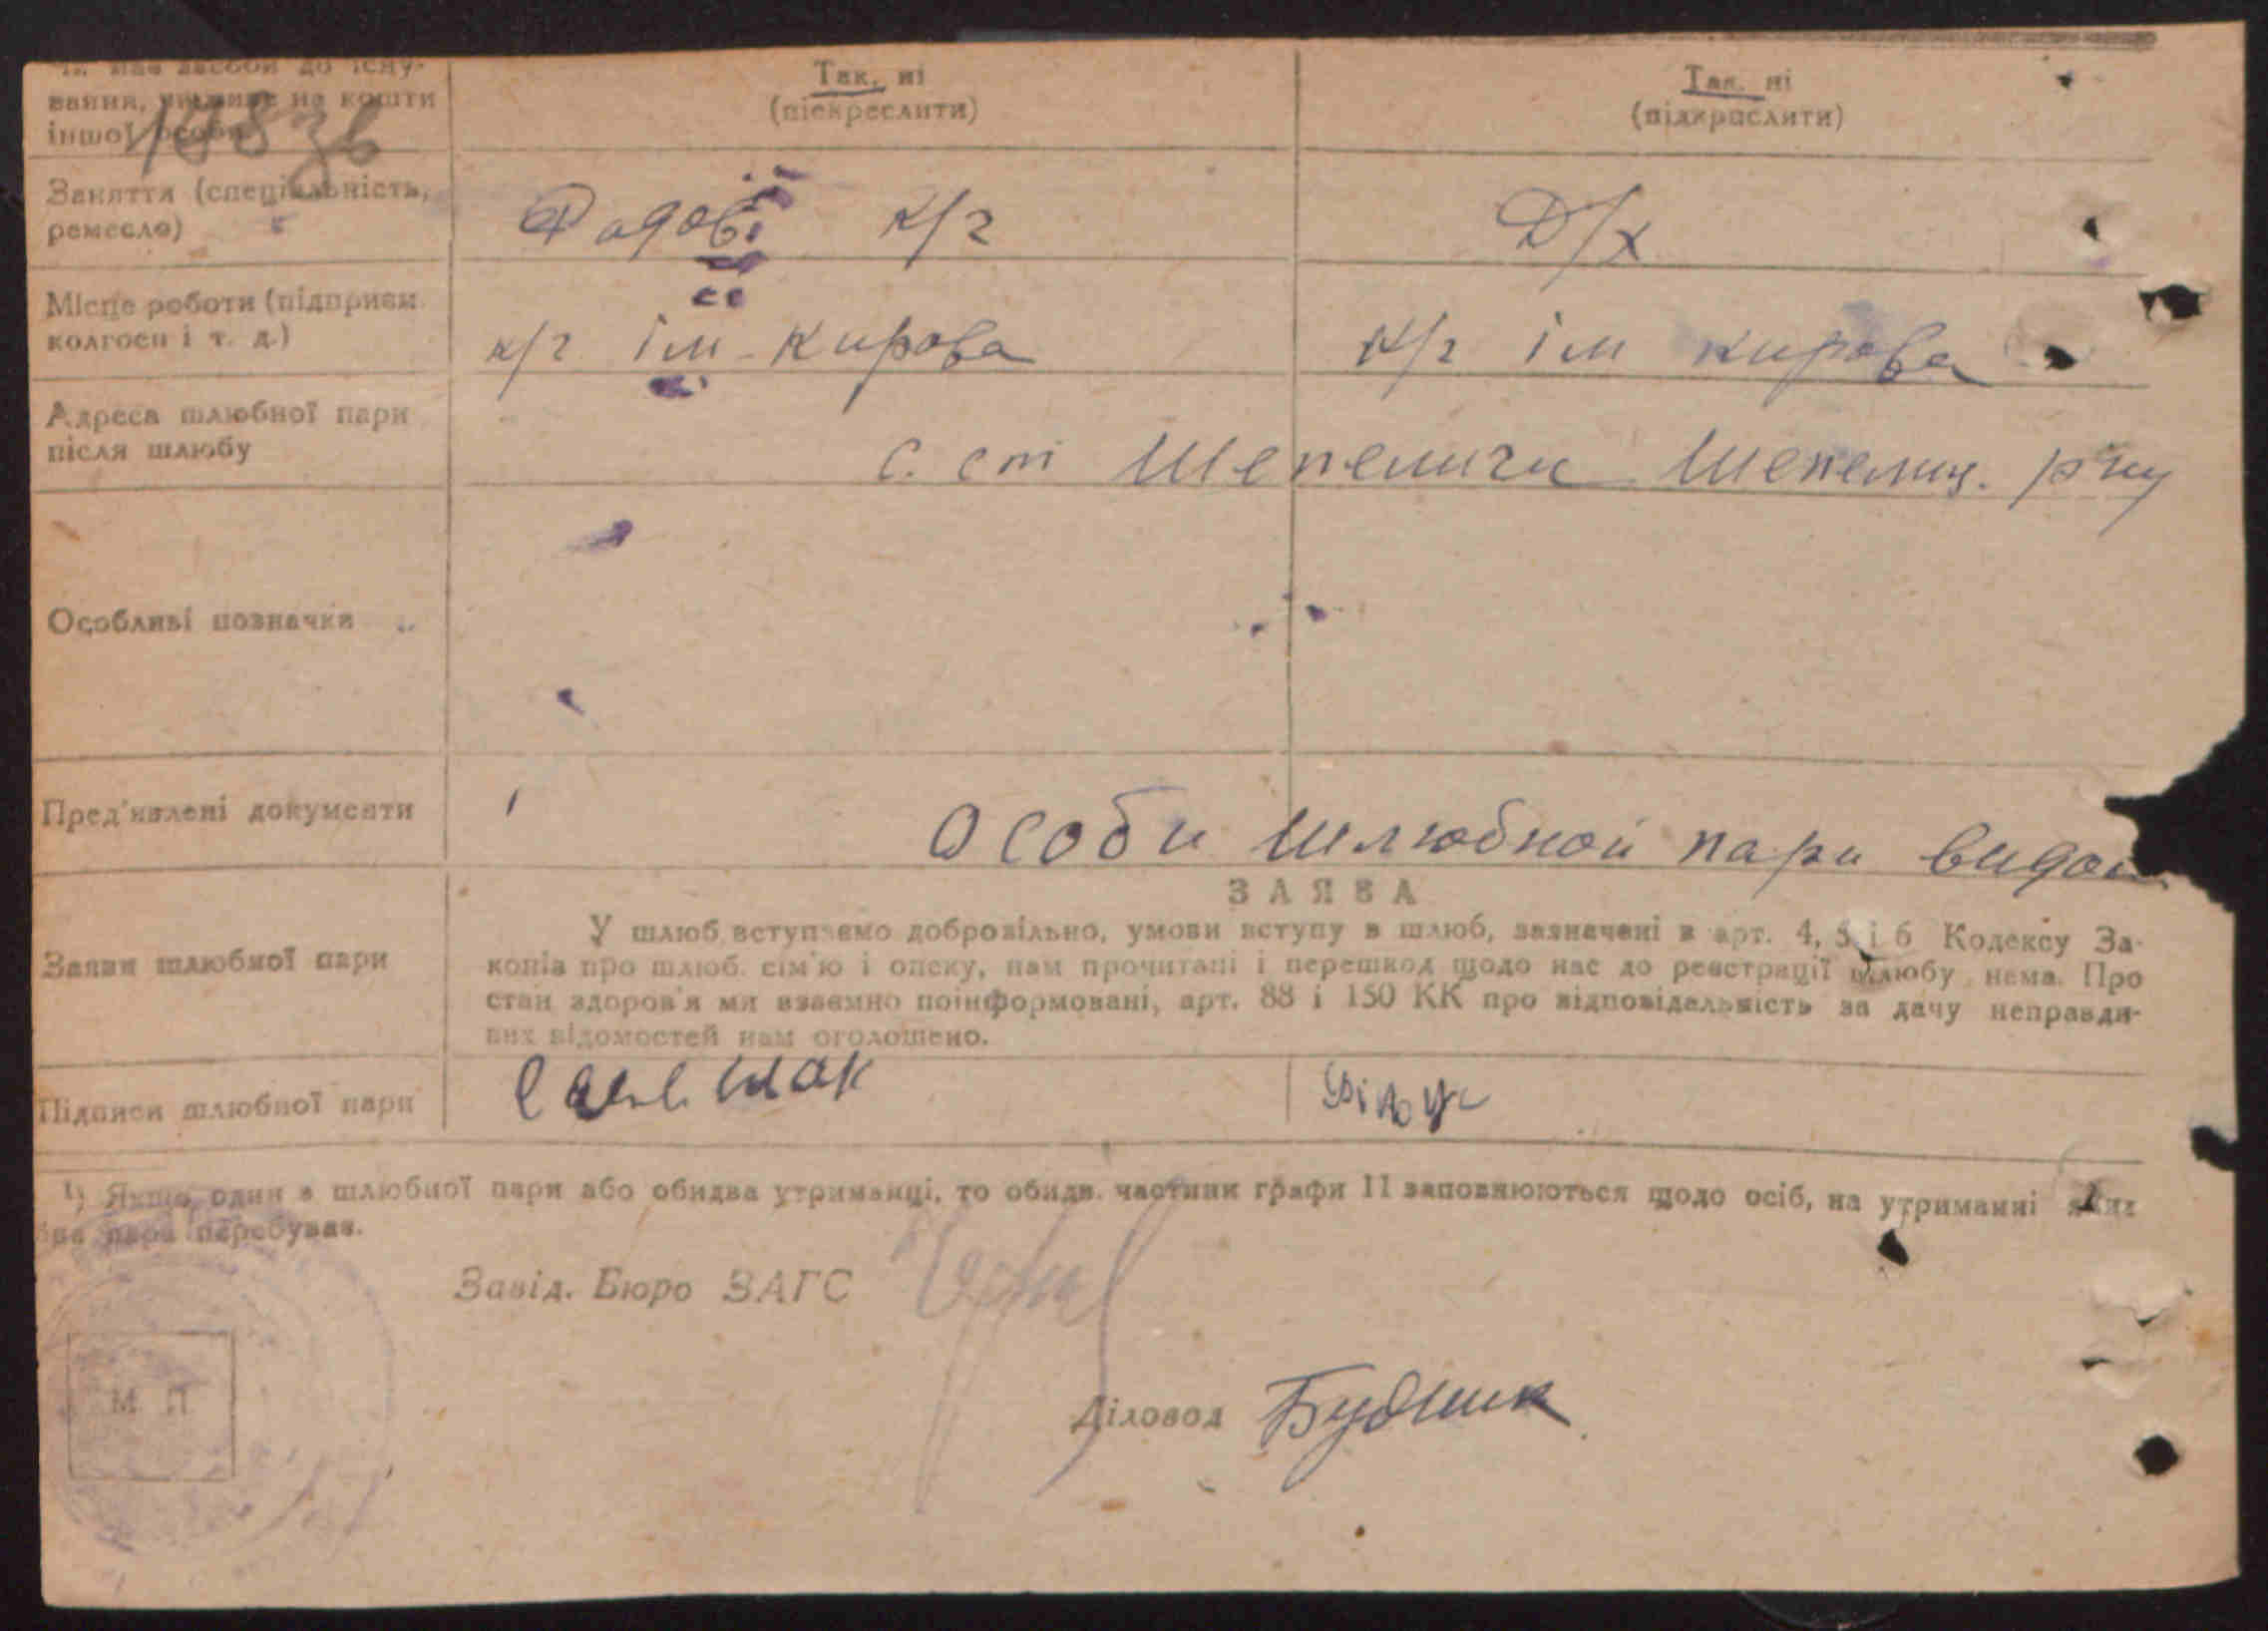 вання, на кошти
іншої особи
148 зв
Так, ні
(піскреслити)
Так, ні
(підкрислити)
Заняття (спеціальність,
ремесло)
к/г
Д/х
Місце роботи (підприєм.
колгосп і т. д.)
к/г ім. Кирова
к/г ім Кирова
Адреса шлюбної пари
після шлюбу
с. ст Шепеличи Шепелиц. р-ну
Особливі позначки
Пред'явлені документи
Особи шлюбной пари
ЗАЯВА
Заяви шлюбної пари
У шлюб вступаємо добровільно, умови вступу в шлюб, зазначені в арт. 4, 5 і 6 Кодексу За-
конів про шлюб, сім'ю і опеку, нам прочитані і перешкод щодо нас до реєстрації шлюбу нема. Про
стан здоров'я ми взаємно поінформовані, арт. 88 і 150 КК про відповідальність за дачу неправди-
вих відомостей нам оголошено.
Підписи шлюбної пари
1) Якщо один з шлюбної пари або обидва утриманці, то обидв. частини графи 11 заповнюються щодо осіб, на утриманні яких
пара перебуває.
Завід. Бюро ЗАГС
М. П.
Діловод Будник